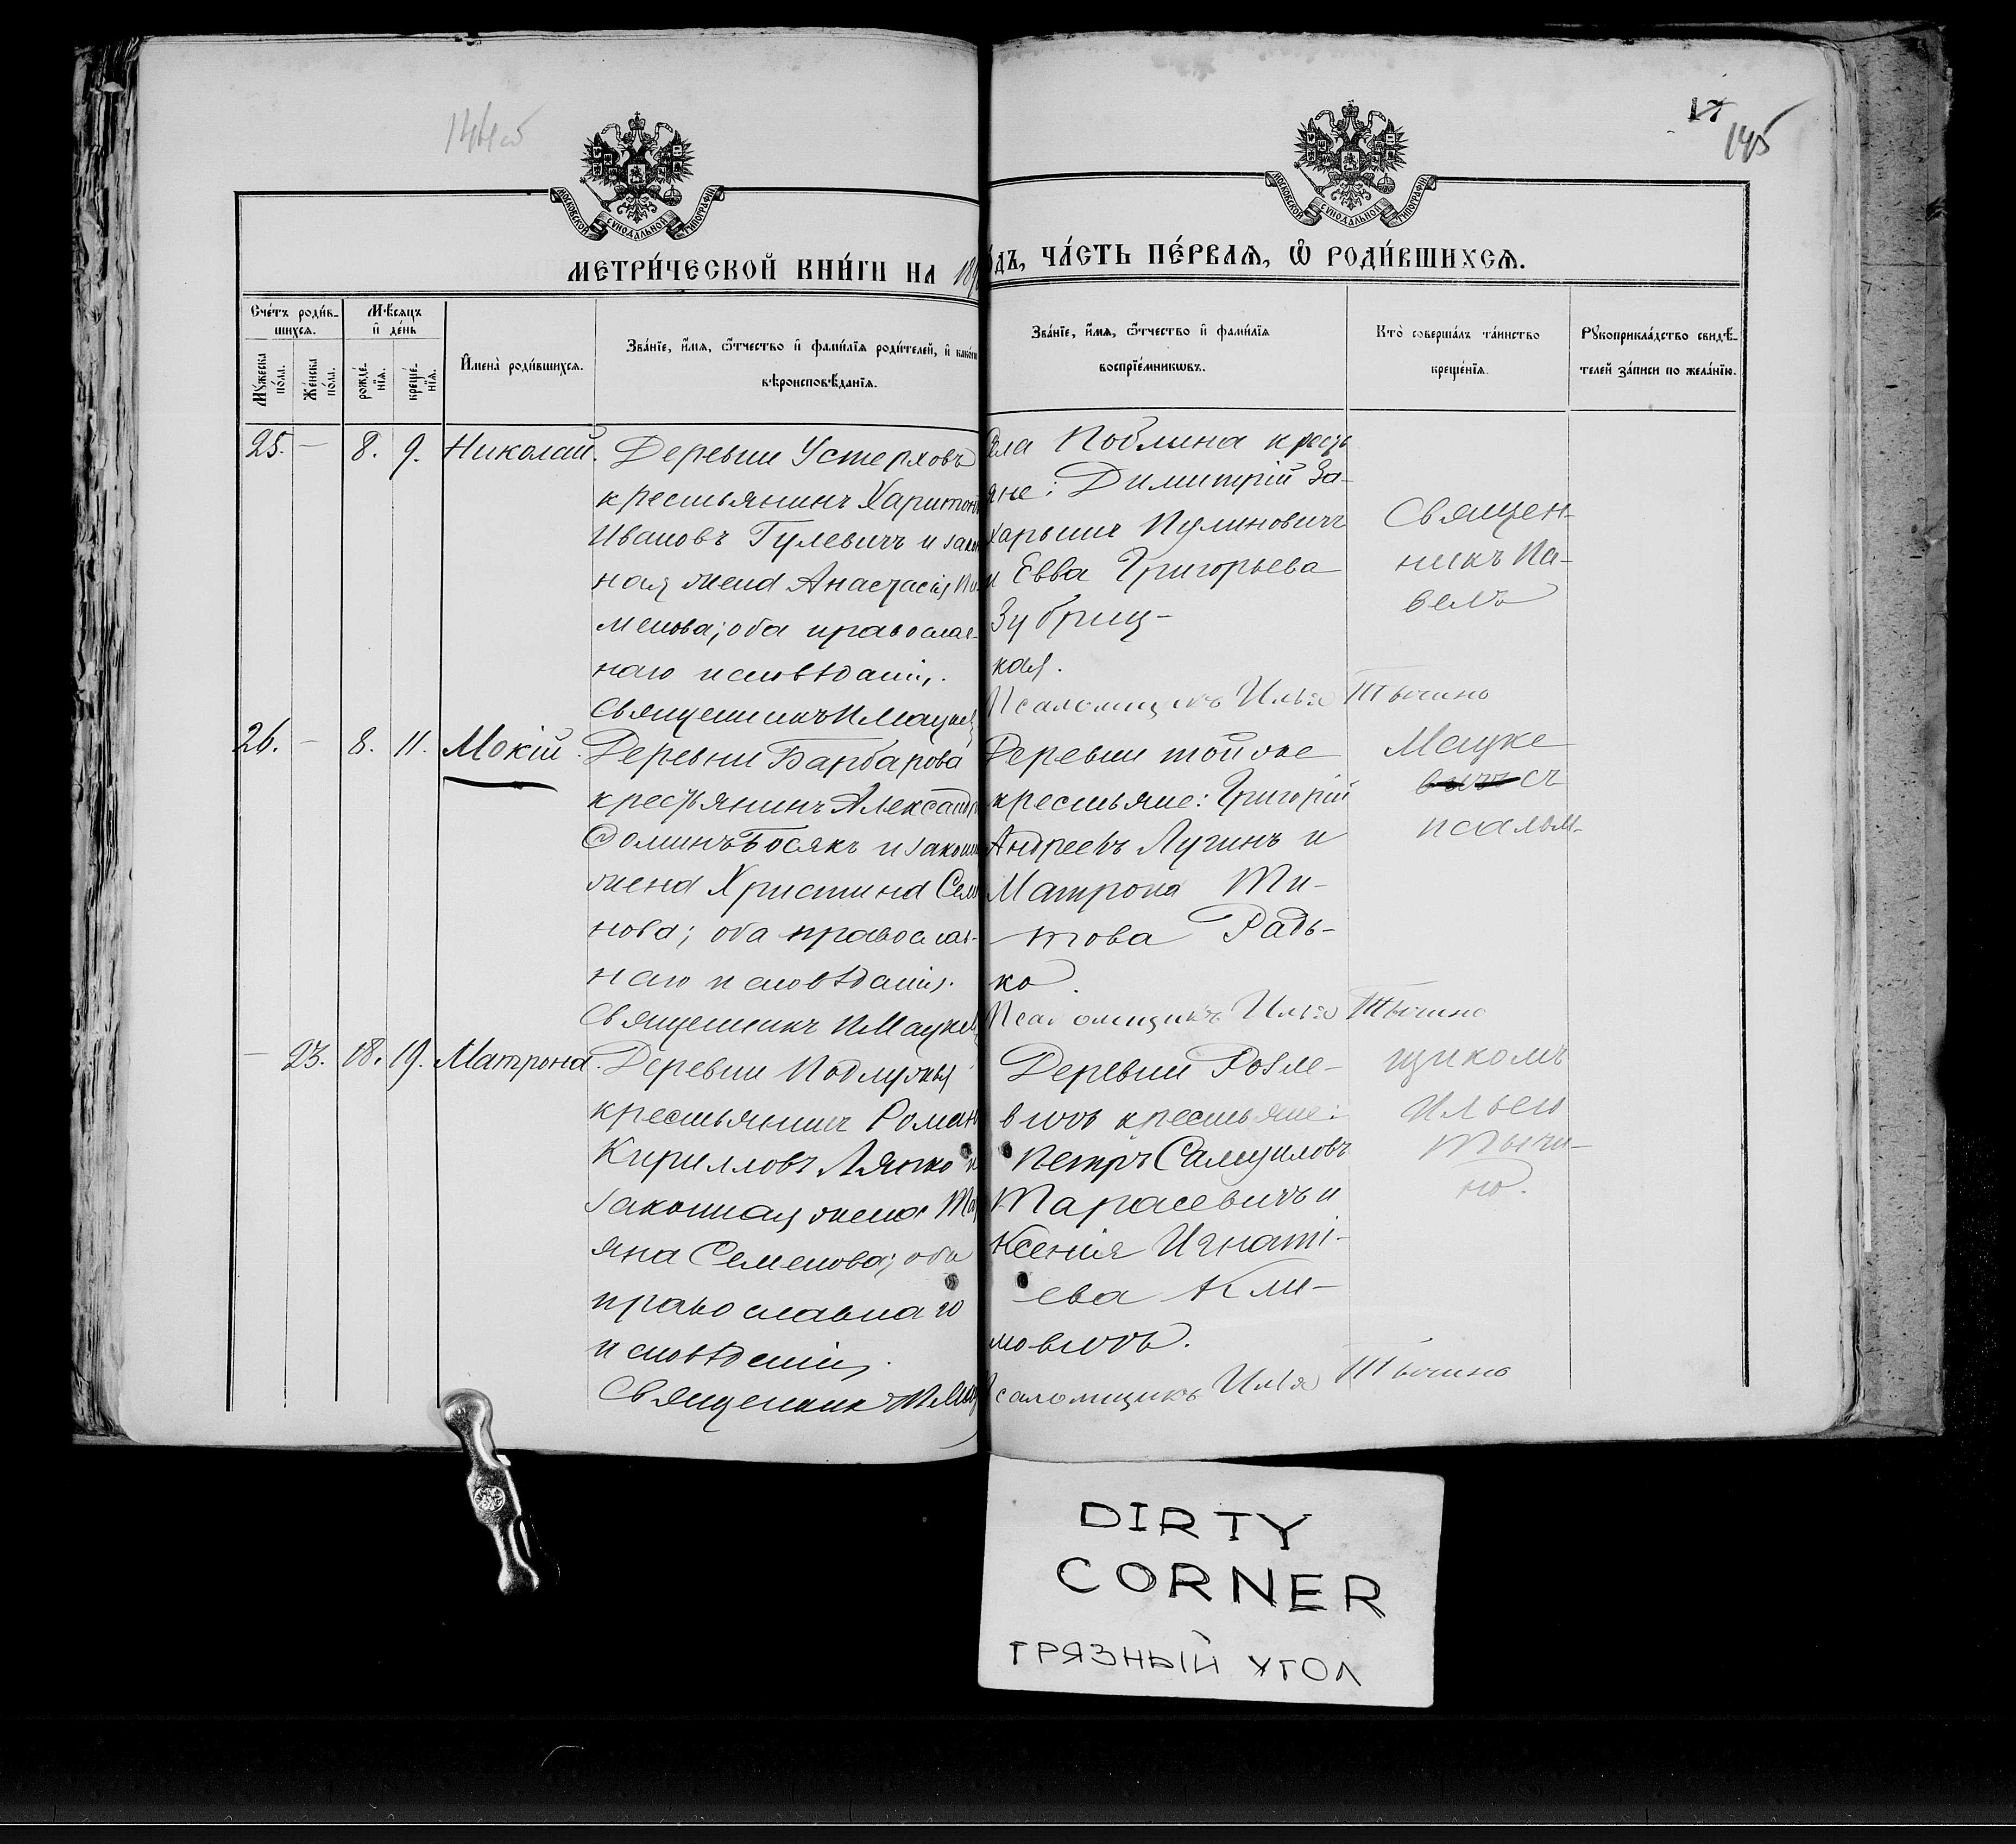 144об
17
145
МОСКОВСКОЙ СУНОДАЛЬНОЙ ТИПОГРАФІИ
МОСКОВСКОЙ СУНОДАЛЬНОЙ ТИПОГРАФІИ
МЕТРИ́ЧЕСКОЙ КНИ́ГИ НА 189
ДЪ, ЧА́СТЬ ПЕ́РВАѦ, Ѡ҆ РОДИ́ВШИХСѦ.
Сче́тъ роди́в-
шихсѧ.
Мꙋжеска по́ла.
Же́нска по́ла.
Мѣ́сѧцъ
и҆ де́нь
рожде́-
нїѧ.
креще́-
нїѧ.
И҆мена̀ роди́вшихсѧ.
Зва́нїе, и҆́мѧ, ѻ҆́тчество и҆ фами́лїѧ роди́телей, и҆ како́гѡ
вѣроисповѣ́данїѧ.
Зва́нїе, и҆́мѧ, ѻ҆́тчество и҆ фами́лїѧ
воспрїе́мникѡвъ.
Кто̀ соверша́лъ та́инство
креще́нїѧ.
Рꙋкоприкла́дство свидѣ́-
телей за́писи по жела́нїю.
25. — 8. 9. Николай.
Деревни Устерховъ
крестьянинъ Харитонъ
Ивановъ Гулевичъ и закон
ная жена Анастасія Пи
менова; оба православ-
наго исповѣданія.
Священникъ П Мацкев
ела Поблина кресть
яне: Димитрій За-
харьинъ Пулиновичъ
и Евва Григорьева
Зубриц-
кая.
Псаломщикъ Илья Тычино
Священ-
никъ Па-
велъ
26. — 8. 11. Мокій.
Деревни Барбарова
крестьянинъ Александръ
Ѳоминъ Босякъ и законн
жена Христина Сем
нова; оба православ-
наго исповѣданія.
Священникъ П Мацкев
Деревни той же
крестьяне: Григорій
Андреевъ Лугинъ и
Матрона Ти-
това Радь-
ко.
Псаломщикъ Илья Тычино
Мацке
вичъ съ
псалом-
— 23. 18. 19. Матрона.
Деревни Подлужья
крестьянинъ Романъ
Кирилловъ Ляхно и
законная жена Тат
яна Семенова; оба
православнаго
исповѣданія.
Священникъ П Мац
Деревни Розле-
вичъ крестьяне:
Петръ Самуиловъ
Тарасевичъ и
Ксенія Игнаті-
ева Кли-
мовичъ.
саломщикъ Илья Тычино
щикомъ
Ильею
Тычи-
но.
DIRTY
CORNER
ГРЯЗНЫЙ УГОЛ